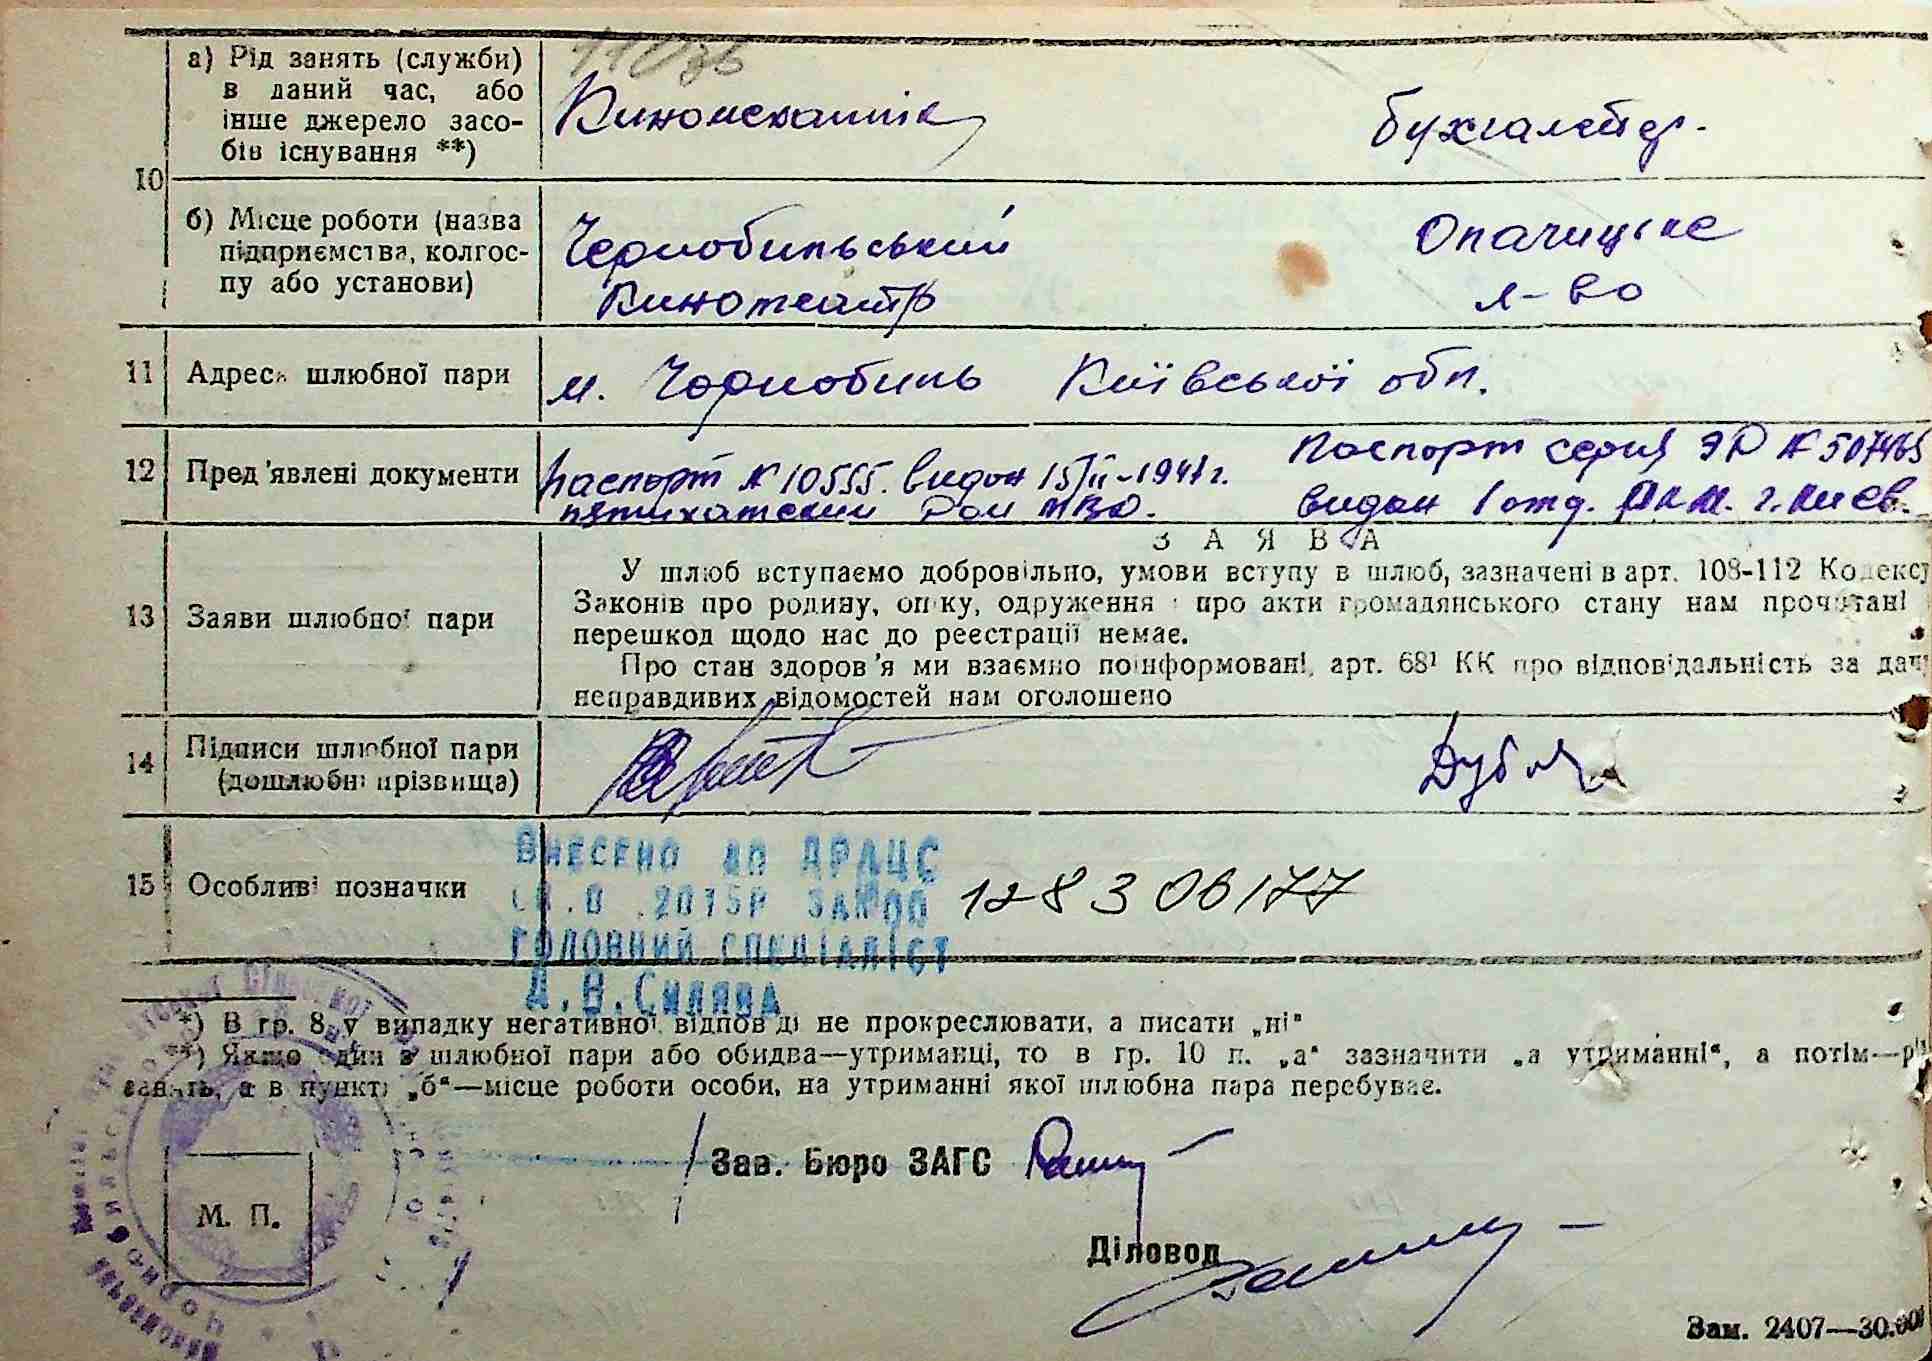 10
а) Рід занять (служби)
в даний час, або
інше джерело засо-
бів існування **)
Киномеханік
бухгалтер.
б) Місце роботи (назва
підприємства, колгос-
пу або установи)
Чернобильський
Кинотеатр
Опачицьке
л-во
11 Адреса шлюбної пари
м. Чорнобиль Київської обл.
12 Пред'явлені документи
Паспорт № 10555. видан 15/II-1941 г.
пятихатский Рай МВД.
Паспорт серия ЭД № 507465
видан 1 отд. г. Киев.
13 Заяви шлюбної пари
ЗАЯВА
У шлюб вступаємо добровільно, умови вступу в шлюб, зазначені в арт. 108-112 Кодексу
Законів про родину, опіку, одруження і про акти громадянського стану нам прочитані
перешкод щодо нас до реєстрації немає.
Про стан здоров'я ми взаємно поінформовані, арт. 68¹ КК про відповідальність за дач
неправдивих відомостей нам оголошено
14 Підписи шлюбної пари
(дошлюбні прізвища)
15 Особливі позначки
ВНЕСЕНО ДО ДРАЦС
2015Р
ГОЛОВНИЙ СПЕЦІАЛІСТ
12830 06177
*) В гр. 8 у випадку негативної відповіді не прокреслювати, а писати „ні"
**) Якщо один з шлюбної пари або обидва—утриманці, то в гр. 10 п. „а" зазначити „а утриманні", а потім—рід
занять, а в пункті „б"—місце роботи особи, на утриманні якої шлюбна пара перебуває.
М. П.
Зав. Бюро ЗАГС
Діловод
Зам. 2407—30.000